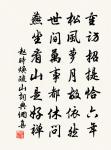 重访招提恰六年
松风萝月故依然
世间万事都休问
燕坐看山是好禅
赵时焕破山兴福寺